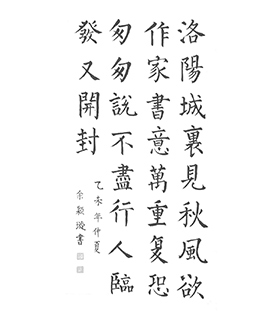 洛陽城裏見秋風欲
作家書意萬重复恐
匆匆說不盡行人臨
發又開封
乙未年仲夏
余書